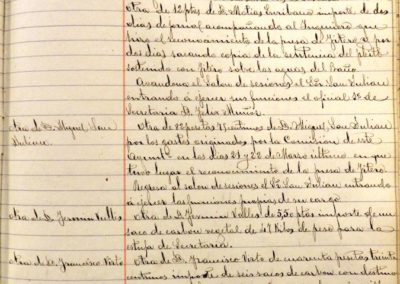 Otra de 12 ptas de D. Matias Enribano importe de dos
dias de jornal acompañando al Ingeniero que
hizo el reconocimiento de la presa de Fitero y por
dos dias sacando copia de la sentencia del pleito
sostenido con Fitero sobre las aguas del Baño
Abandona el Salon de sesiones el Sr. San Julian
entrando á ejercer sus funciones el oficial 1º de
Secretaria D. Felix Muñoz.
Otra de D. Miguel San
Julian.
Otra de 22 pesetas de D. Miguel San Julian
por los gastos originados por la Comision de este
Ayuntº en los dias 21 y 22 de Marzo ultimo en que
tuvo lugar el reconocimiento de la presa de Fitero.
Regresa al salon de sesiones el Sr. San Julian entrando
á ejercer las funciones propias de su cargo
Otra de D. Fermin Valles
Otra de D. Fermin Valles de 5,50 ptas importe de un
saco de carbon vegetal de 47 Kilos de peso para la
estufa de Secretaria.
Otra de D. Francisco Virto
Otra de D. Francisco Virto de cuarenta pesetas treinta
centimos importe de seis sacos de carbon con destino